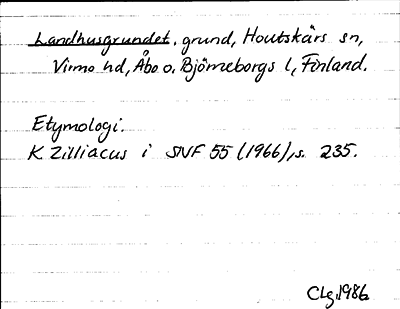 Landhusgrundet, grund, Houtskärs sn,
Virmo hd, Åbo o. Björneborgs l, Finland.
Etymologi.
K Zilliacus i SNF 55 (1966), s. 235.
CLg.1986